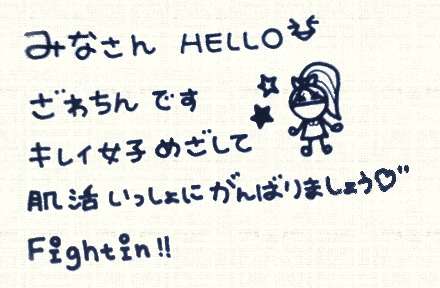 みなさん HELLO
ざわちん です
キレイ女子 めざして
肌活 いっしょに がんばりましょう♡"
Fightin!!